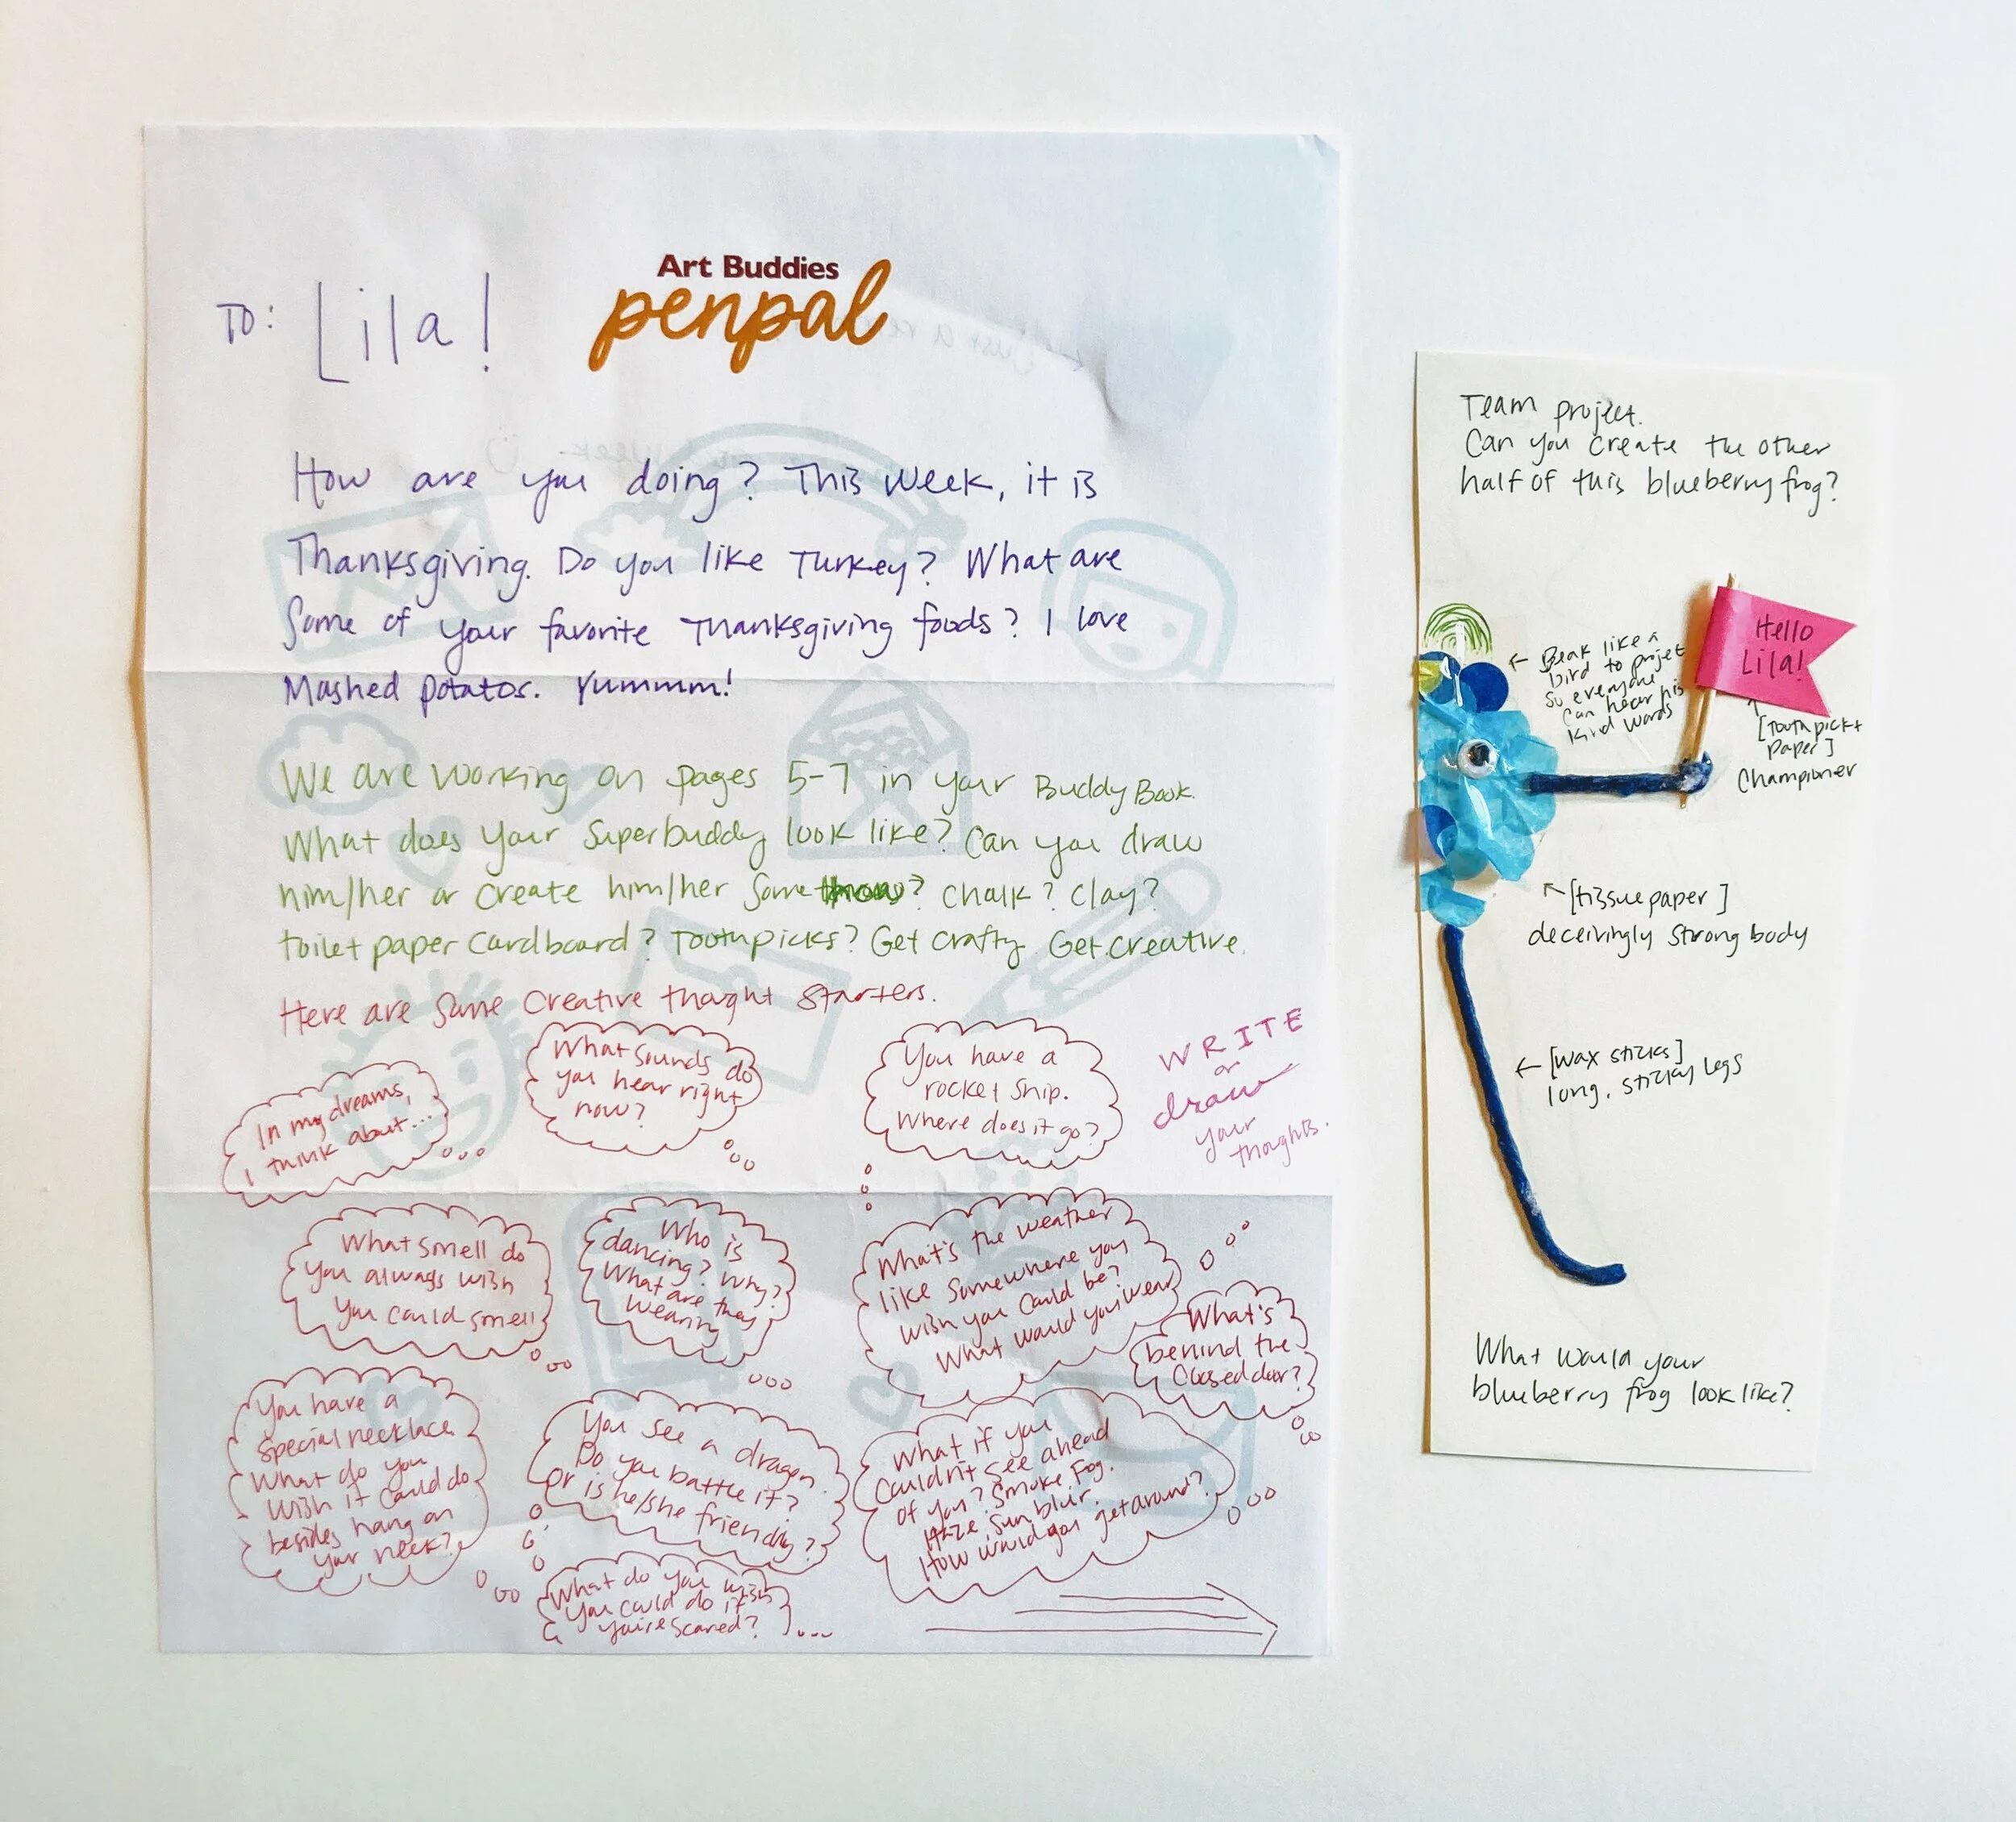 Art Buddies
penpal
To: Lila!
How are you doing? This week, it is
Thanksgiving. Do you like Turkey? What are
some of your favorite Thanksgiving foods? I love
Mashed potatos. Yummm!
We are working on pages 5-7 in your Buddy Book.
What does your Superbuddy look like? Can you draw
him/her or create him/her some ? Chalk? Clay?
toilet paper cardboard? Toothpicks? Get crafty. Get creative.
Here are some creative thought starters.
In my dreams,
I think about...
What sounds do
you hear right
now?
You have a
rocket ship.
Where does it go?
WRITE
or
draw
your
thoughts.
What smell do
you always wish
you could smell
Who is
dancing? Why?
What are they
wearing
What's the weather
like somewhere you
wish you could be?
What would you wear
What's
behind the
closed door?
You have a
special necklace
What do you
wish it could do
besides hang on
your neck?
You see a dragon.
Do you battle it?
Or is he/she friendly?
What if you
couldn't see ahead
of you? Smoke. Fog.
Haze. Sun blur.
How would you get around?
What do you wish
you could do if
you're scared?
Team project.
Can you create the other
half of this blueberry frog?
Hello
Lila!
← Beak like a
bird to projet
so everyone
can hear his
kind words
[toothpick+
paper]
Championer
[tissue paper]
deceivingly strong body
← [wax sticks]
long, sticky legs
What would your
blueberry frog look like?